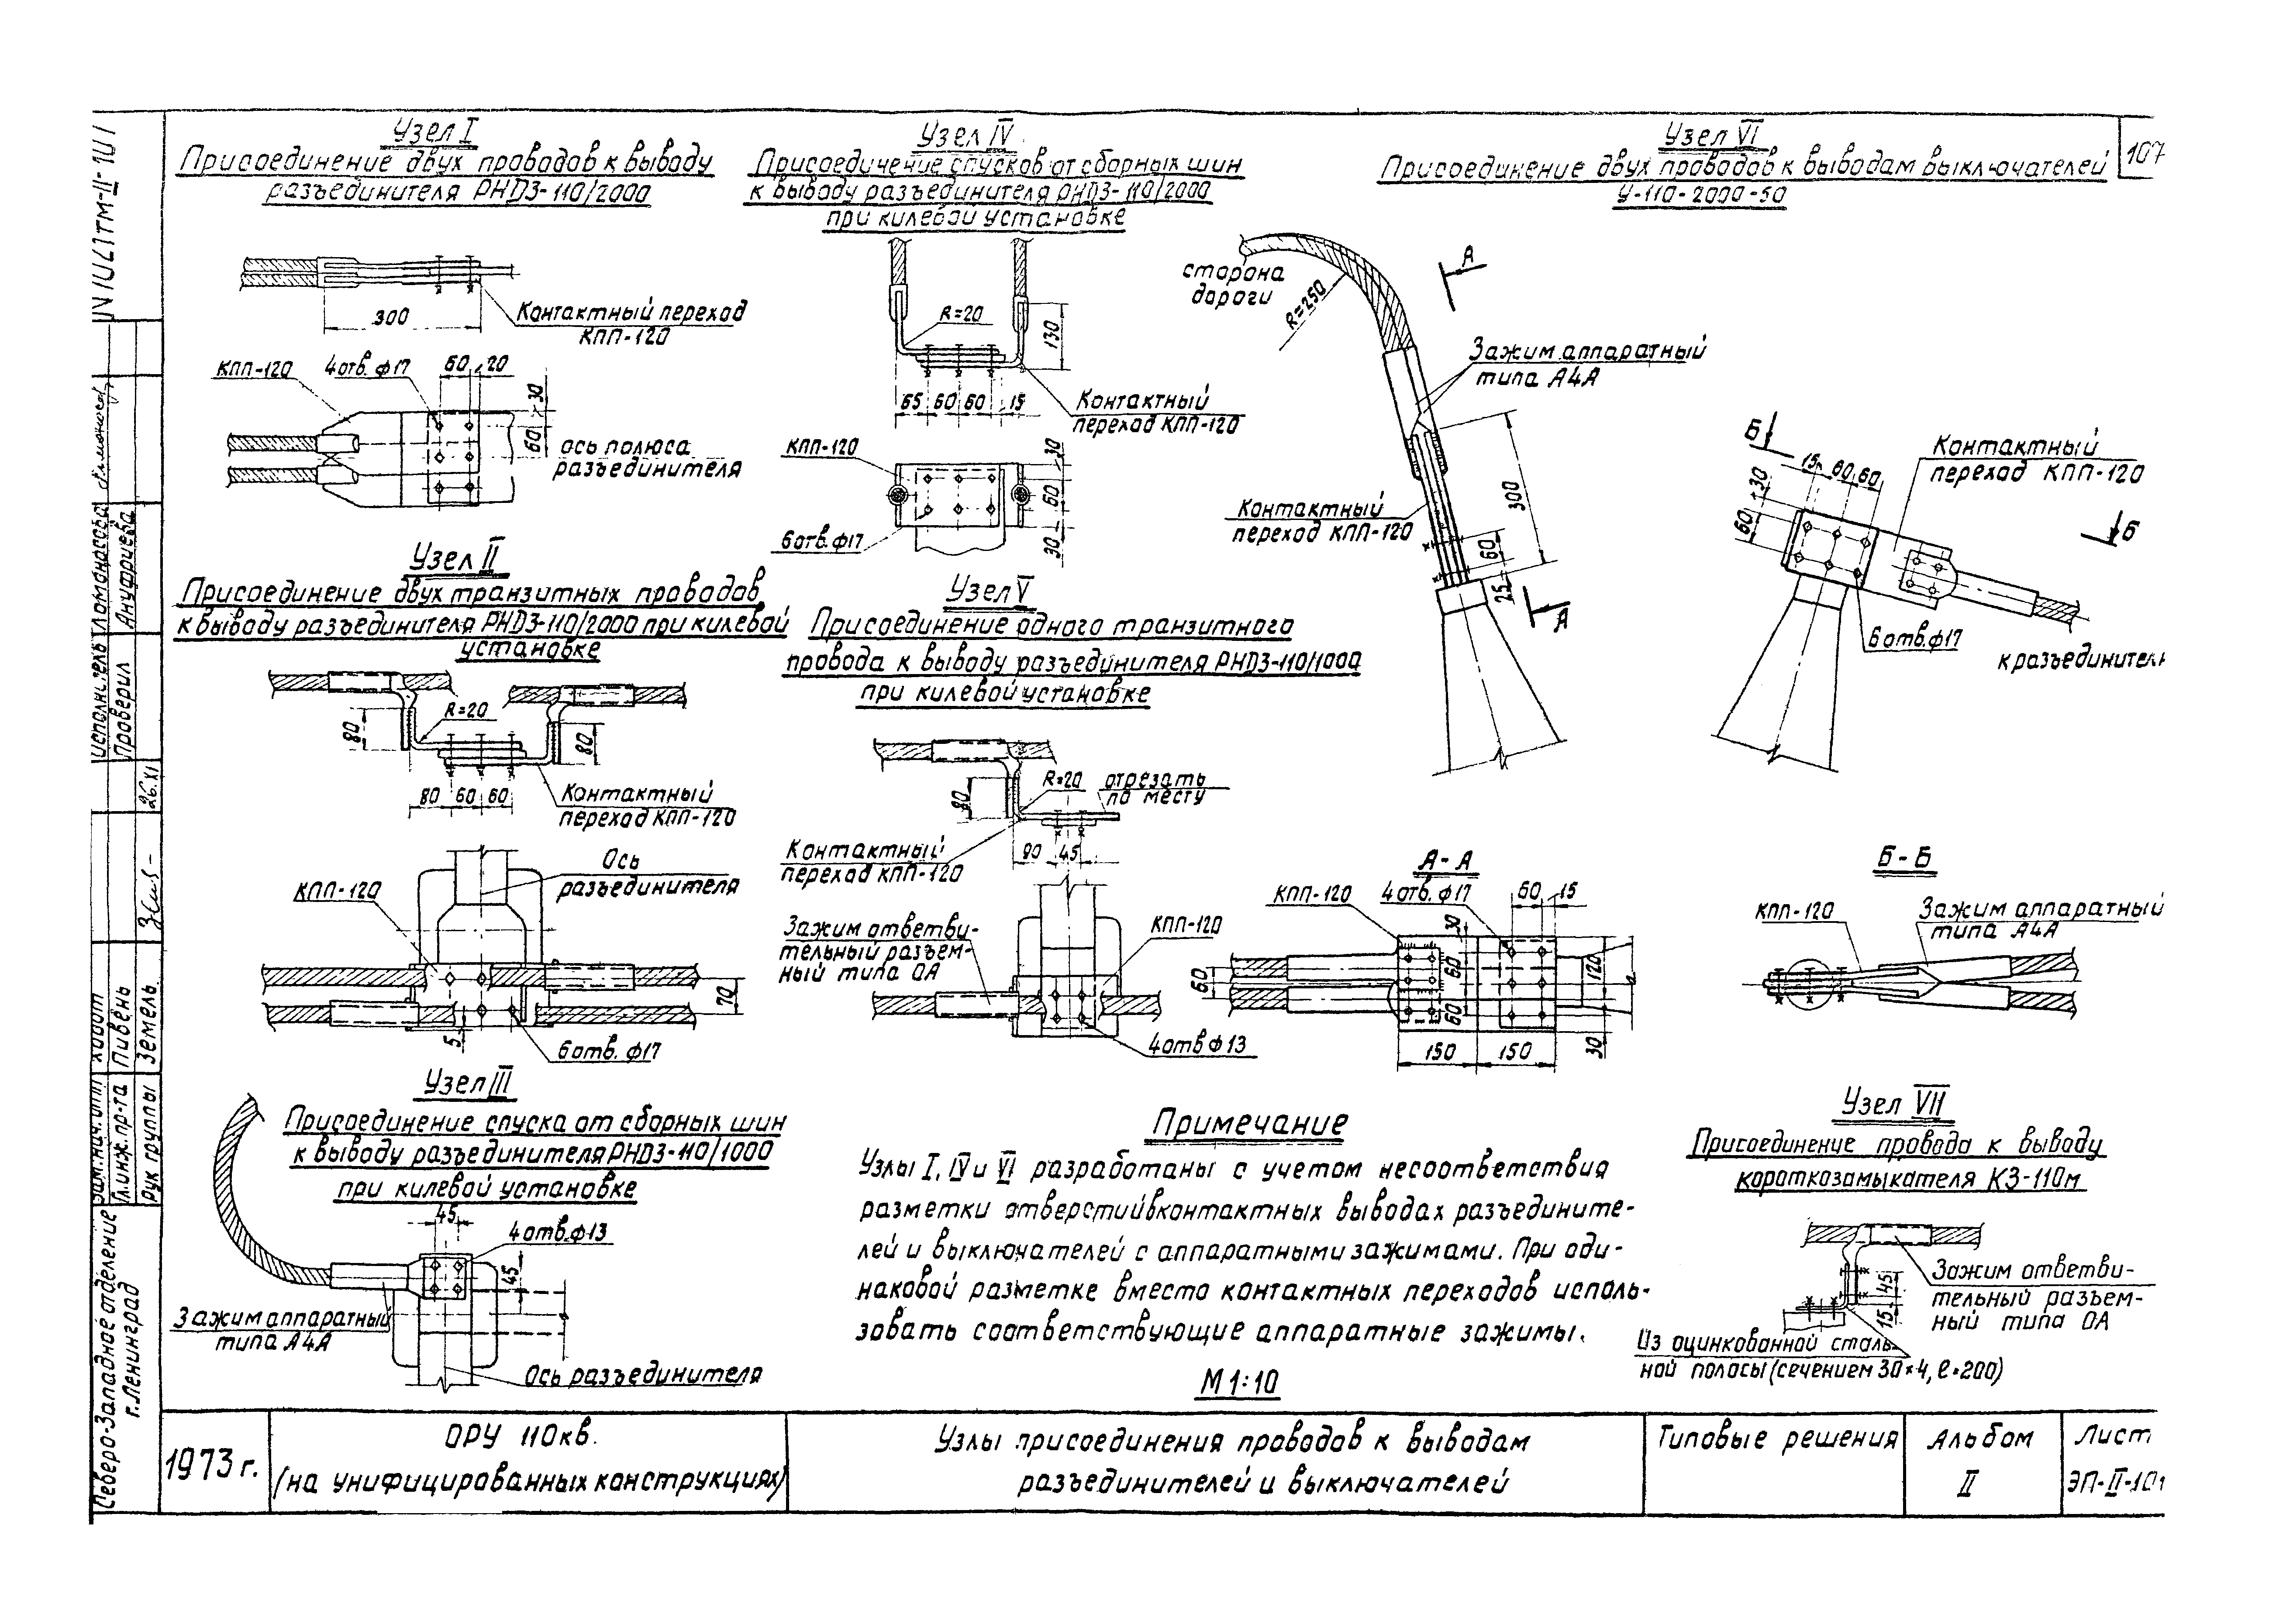 107
Узел I
Присоединение двух проводов к выводу
разъединителя РНДЗ-110/2000
300
Контактный переход
КПП-120
КПП-120
4 отв. ф17
60
20
30
60
ось полюса
разъединителя
Узел II
Присоединение двух транзитных проводов
к выводу разъединителя РНДЗ-110/2000 при килевой
установке
80
R=20
80
80
60
60
Контактный
переход КПП-120
Ось
разъединителя
КПП-120
70
5
6 отв. ф17
Узел III
Присоединение спуска от сборных шин
к выводу разъединителя РНДЗ-110/1000
при килевой установке
45
4 отв. ф13
45
Зажим аппаратный
типа А4А
Ось разъединителя
Узел IV
Присоединение спусков от сборных шин
к выводу разъединителя РНДЗ-110/2000
при килевой установке
R=20
130
65
60
60
15
Контактный
переход КПП-120
КПП-120
30
60
30
6 отв. ф17
Узел V
Присоединение одного транзитного
провода к выводу разъединителя РНДЗ-110/1000
при килевой установке
80
R=20
отрезать
по месту
90
45
Контактный
переход КПП-120
Зажим ответви-
тельный разъем-
ный типа ОА
КПП-120
4 отв ф13
Узел VI
Присоединение двух проводов к выводам выключателей
У-110-2000-50
сторона
дороги
R=250
А
Зажим аппаратный
типа А4А
300
Контактный
переход КПП-120
60
25
А
Б
15
60
60
30
60
Контактный
переход КПП-120
Б
6 отв. ф17
к разъединител
А-А
КПП-120
4 отв. ф17
60
15
30
60
60
60
120
30
150
150
Б-Б
КПП-120
Зажим аппаратный
типа А4А
Узел VII
Присоединение провода к выводу
короткозамыкателя КЗ-110м
45
15
Зажим ответви-
тельный разъем-
ный типа ОА
Из оцинкованной сталь-
ной полосы (сечением 30×4, ℓ=200)
Примечание
Узлы I, IV и VI разработаны с учетом несоответствия
разметки отверстий в контактных выводах разъедините-
лей и выключателей с аппаратными зажимами. При оди-
наковой разметке вместо контактных переходов исполь-
зовать соответствующие аппаратные зажимы.
М 1:10
1973 г.
ОРУ 110 кв.
(на унифицированных конструкциях)
Узлы присоединения проводов к выводам
разъединителей и выключателей
Типовые решения
Альбом
II
Лист
ЭП-II-101
Северо-Западное отделение
г. Ленинград
Зам. нач. ОТП
Гл. инж. пр-та
Пивень
Рук группы
Земель
26.XI
Исполнитель
Ломоносова
Проверил
Ануфриева